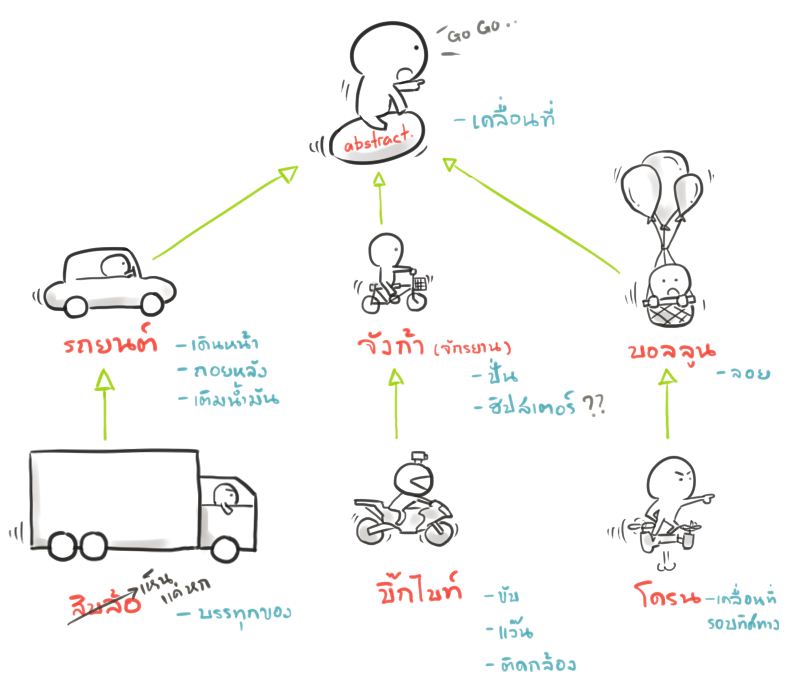 Go Go..
abstract.
- เคลื่อนที่
รถยนต์
- เดินหน้า
- ถอยหลัง
- เติมน้ำมัน
จังก้า (จักรยาน)
- ปั่น
- ฮิปสเตอร์ ??
บอลลูน
- ลอย
สิบล้อ
เห็น
แค่หก
- บรรทุกของ
บิ๊กไบท์
- ขับ
- แว๊น
- ติดกล้อง
โดรน
- เคลื่อนที่
รอบทิศทาง